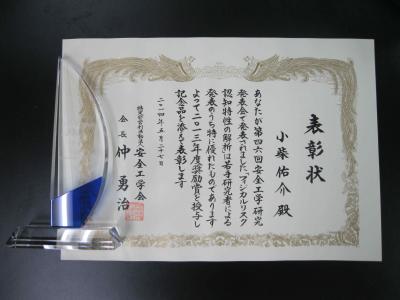 表彰状
小柴佑介 殿
あなたが第四六回安全工学研究
発表会で発表されました「フィジカルリスク
認知特性の解析」は若手研究者による
発表のうち特に優れたものであります
よって二〇一三年度奨励賞を授与し
記念品を添えて表彰します
二〇一四年五月二十七日
安全工学会
会長 仲 勇治